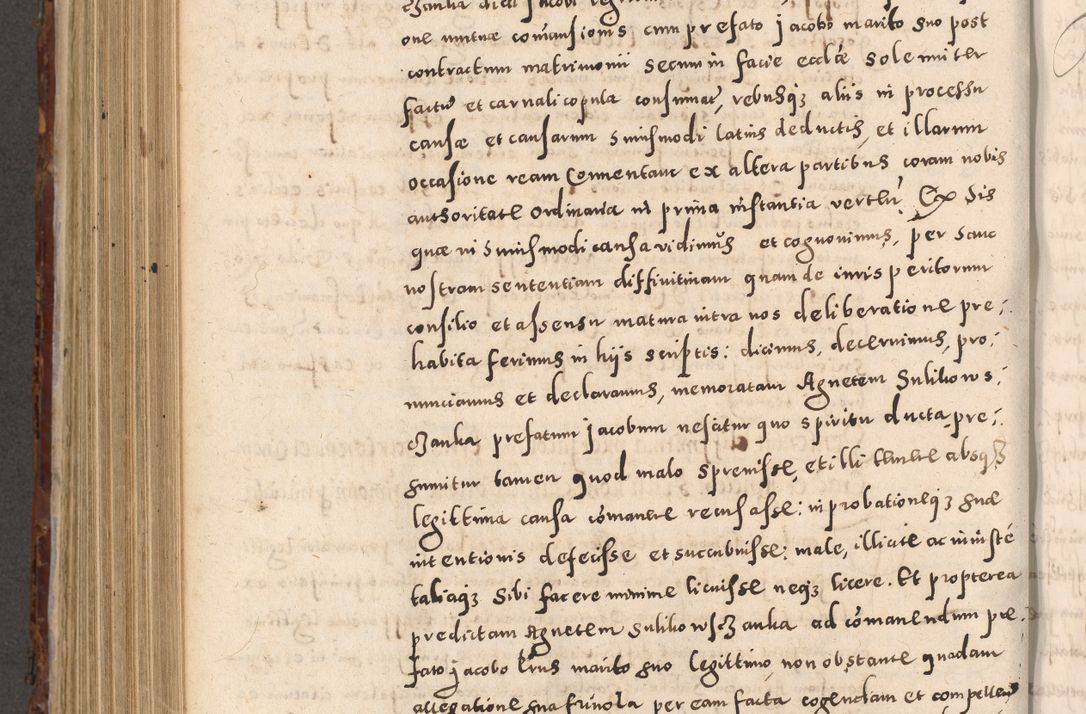 one mutuæ comansionis cum prefato Jacobo marito suo post
contractum matrimonii secum in facie ecclæ solemniter
factū et carnali copula consumat, rebusq3 aliis in processu
causæ et causarum Huiusmodi latius deductis, et illarum
occasione ream Conuentam ex altera partibus coram nobis
authoritate Ordinaria in prima instantia vertlr. Ex His
quæ in Huiusmodi causa vidimus et cognouimus, per Hanc
nostram sententiam diffinitiuam quam de iuris peritorum
consilio et assensu matura intra nos deliberatione pre-
habita ferimus in hijs scriptis: dicimus, decernimus, pro-
nunciamus et declaramus, memoratam Agnetem Sulikows-
cZanka prefatum Jacobum nescitur quo spiritu ducta, pre-
sumitur tamen quod malo spreuisse, et illi tenere absq3
legittima causa comanere recusasse: in probationeq3 suæ
intentionis defecisse et succubuisse: male, illicite ac iniuste
taliaq3 Sibi facere minime licuisse neq3 licere. Et propterea
predictam Agnetem SulikowscZanka ad comanendum pre-
fato Jacobo marito suo legittimo, non obstante quadam
allegatione sua friuola per eam facta cogendam et compellen